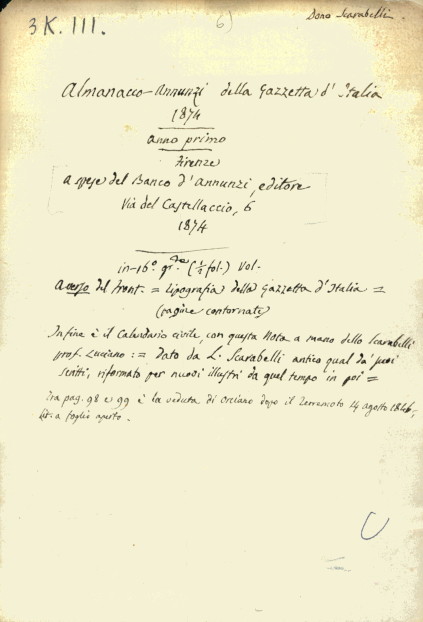 3 K. III.
6)
Dono Scarabelli.
Almanacco-Annunzi della Gazzetta d'Italia
1874
anno primo
Firenze
a spese del Banco d'Annunzi, editore
Via del Castellaccio, 6
1874
in-16º. gr.de (½ fol.) Vol.
A verso del front. = Tipografia della Gazzetta d'Italia =
(pagine contornate)
Infine è il Calendario civile, con questa Nota a mano dello Scarabelli
prof. Luciano: = Dato da L. Scarabelli antico qual da' suoi
scritti, riformato per nuovi illustri da quel tempo in poi =
Tra pag. 98 e 99 è la veduta di Orciano dopo il Terremoto 14 agosto 1846,
lit. a foglio aperto.